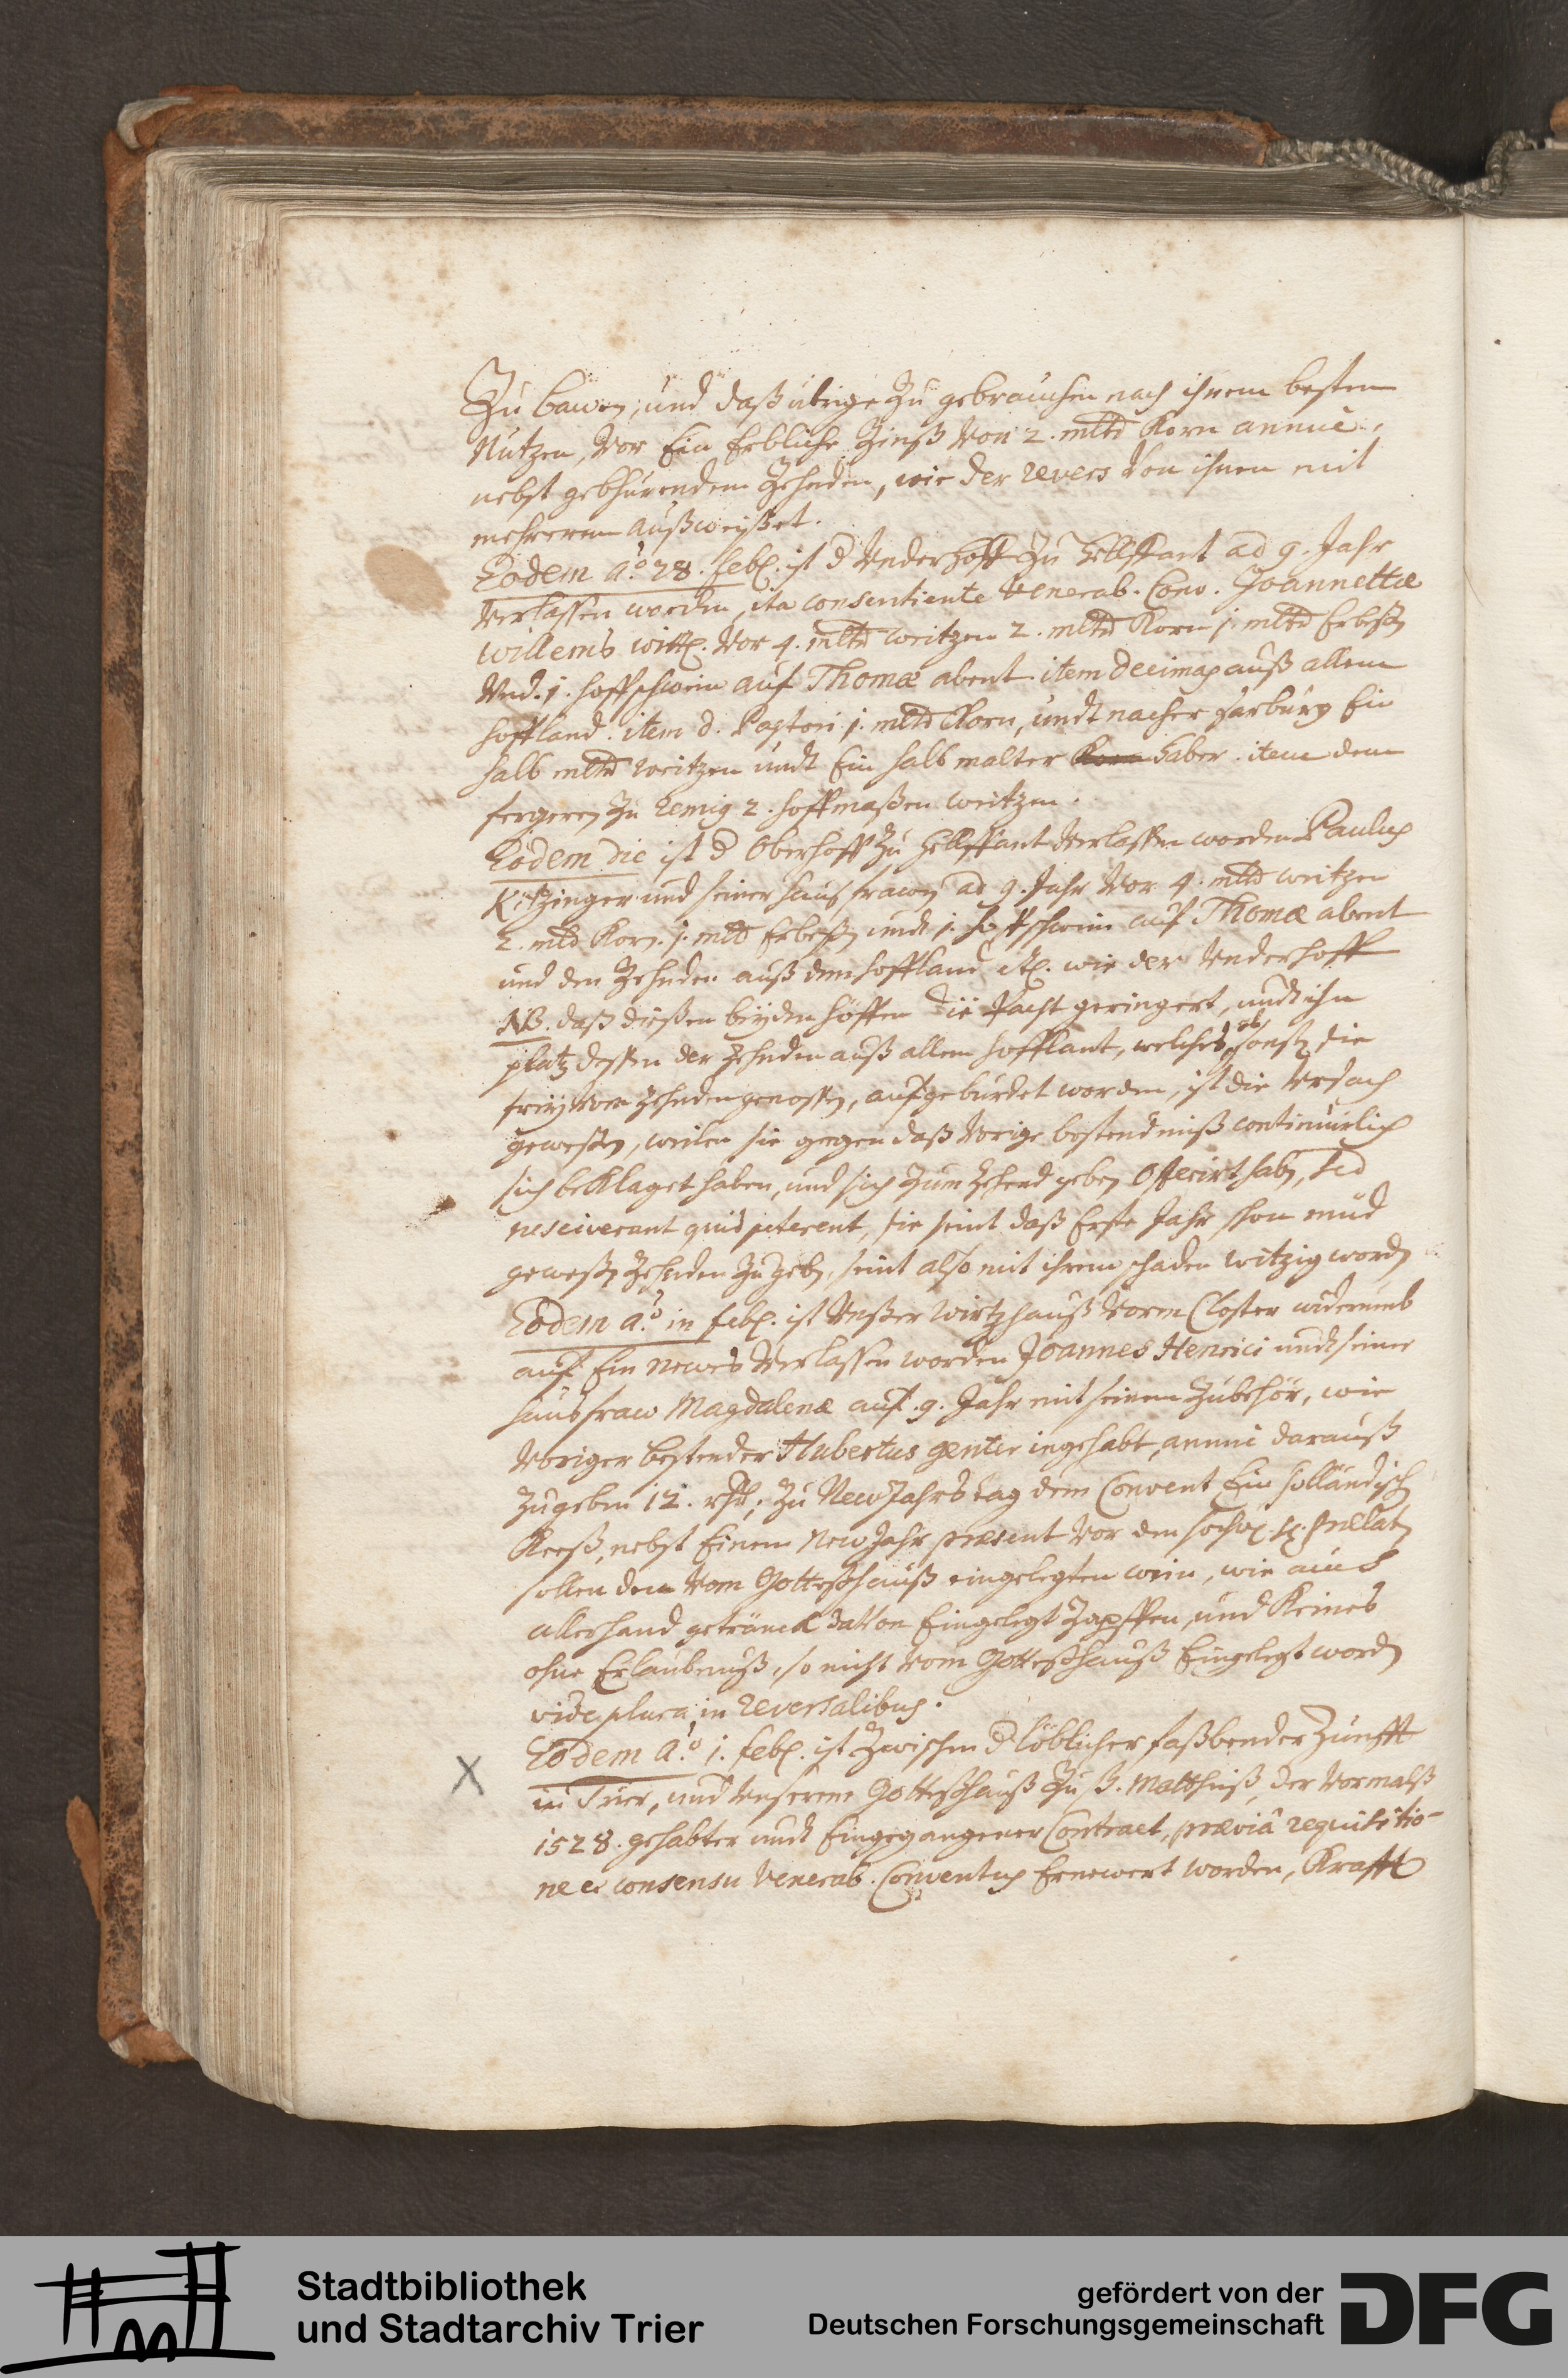 Zu bawen, und daß übrige zu gebrauchen nach ihrem besten
Nutzen, vor Ein Erbliche Zinß von 2. mltr Korn annue,
nebst gebhürendem Zehnden, wie der revers von ihnen mit
mehrerem außweißet.
Eodem a.o 28. feb. ist d Underhoff zu Hellffant ad 9. Jahr
verlassen worden, ita consentiente Venerab. Conv. Joannettæ
Willems witt. vor 4. mltr weitzen 2. mltr Korn j. mltr Erbß
Und. 1. hoffschwein auf Thomæ abent. item decimas auß allem
hoffland. item d. Pastori j. mltr Korn, undt nacher Sarburg Ein
halb mltr weitzen undt Ein halb malter Korn haber. item dem
fergeren zu Remig 2. hoffmaßen weitzen.
Eodem die ist d Oberhoff zu Hellffant verlassen worden Paulus
Kitzinger und seiner hausfrawen ad 9. Jahr vor 4. mltr weitzen
2. mltr Korn. j. mltr Erbeß undt j. hoffschwein auf Thomæ abent
und den Zehnden auß dem hoffland etc. wie der Underhoff
NB. daß dießen beyden höffen die Pacht geringert, undt ihn
platz dessen der Zehnden auß allem hofflant, welches sonst sie
frey vom Zehnden genossen, aufgebürdet worden, ist die Ursach
geweßen, weilen sie gegen daß vorige bestendniß continuirlich
sich beklaget haben, und sich zum Zehend geben offerirt haben, sed
nesciverant quid peterent, sie seint daß Erste Jahr schon müd
geweßen Zehnden zu geben, seint also mit ihrem schaden witzig worden
Eodem a.o in feb. ist Unßer Wirtzhauß vorm Closter widerumb
auf Ein newes verlassen worden Joannes Henrici undt seiner
hausfraw Magdalenæ auf 9. Jahr mit seinem Zubehör, wie
voriger bestender Hubertus Genter ingehabt, annui darauß
zugeben 12. rth, zu NewJahrstag dem Convent Ein holländisch
Keeß, nebst Einem NewJahr præsent vor den hochw. h. prælaten
sollen den vom Gotteßhauß eingelegten wein, wie auch
allerhand geträncK davon Eingelegt Zapffen, und Keines
ohne Erlaubnuß, so nicht vom Gotteßhauß Eingelegt worden
vide plura in reversalibus.
Eodem a.o 1. feb. ist zwischen d löblicher faßbender Zunfft
in Trier, und Unserem Gotteßhauß zu S. Matthiß, der vormalß
1528. gehabter undt Eingegangener Contract, præviâ requisitio-
ne et consensu Venerab. Conventus Ernewert worden, Krafft
X
Stadtbibliothek
und Stadtarchiv Trier
gefördert von der
Deutschen Forschungsgemeinschaft
DFG